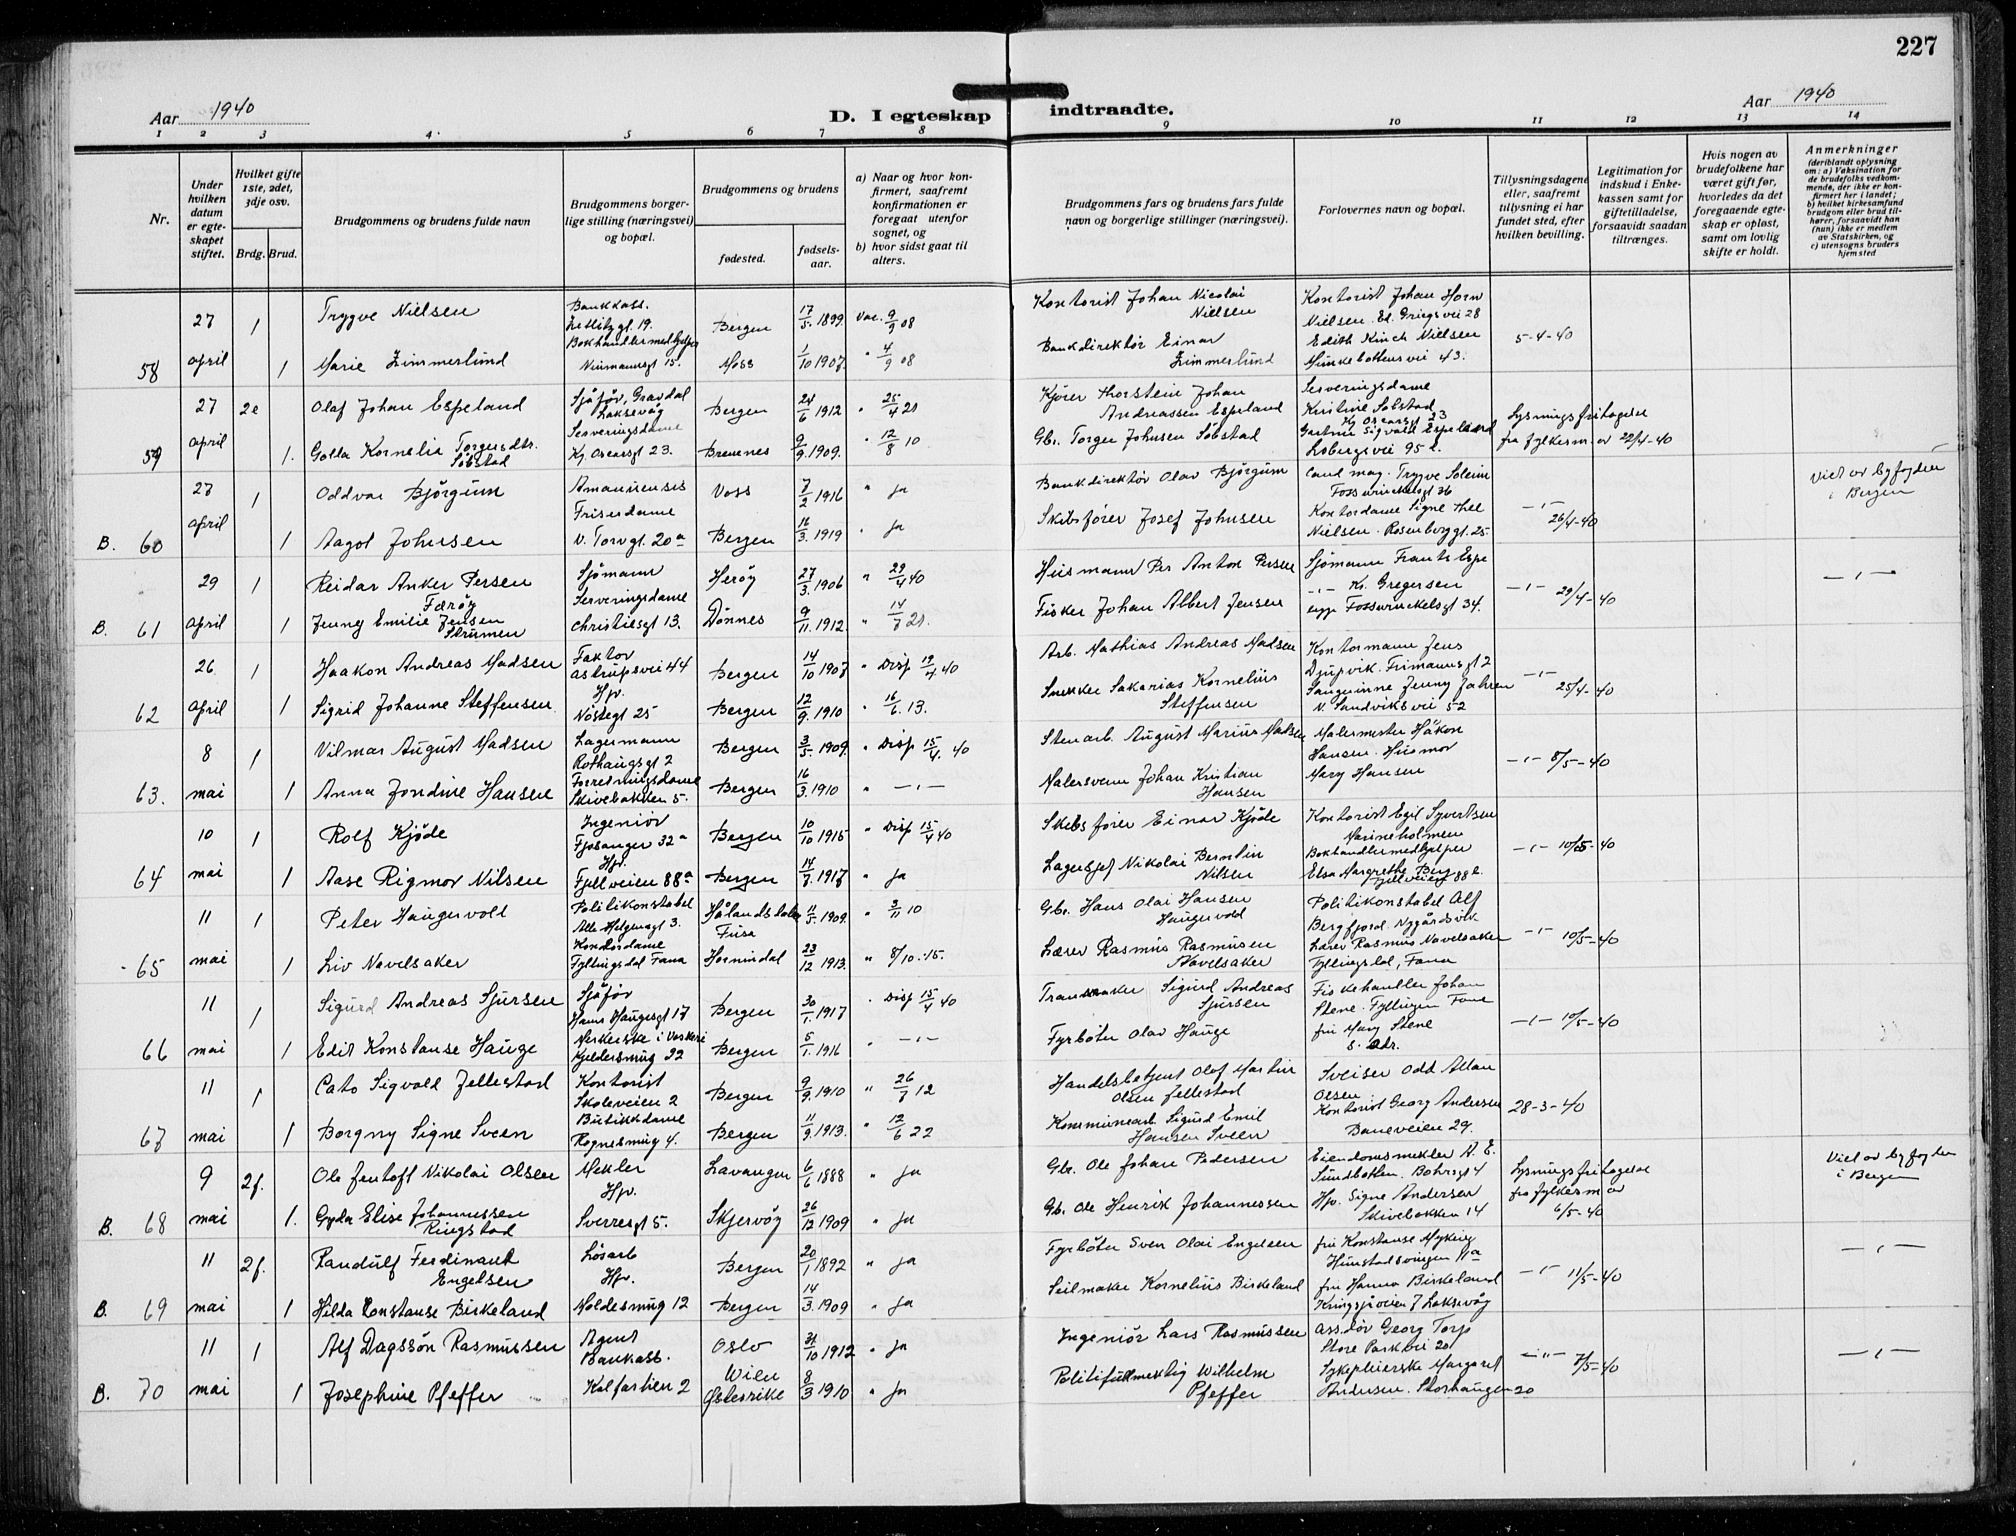 227
Aar 1940
D. I egteskap indtraadte.
Aar 1940
1 2 3 4 5 6 7 8 9 10 11 12 13 14
Nr.
Under hvilken datum er egteskapet stiftet.
Hvilket gifte 1ste, 2det, 3dje osv.
Brdg. Brud.
Brudgommens og brudens fulde navn
Brudgommens borgerlige stilling (næringsvei) og bopæl.
Brudgommens og brudens
fødested.
fødselsaar.
a) Naar og hvor konfirmert, saafremt konfirmationen er foregaat utenfor sognet, og
b) hvor sidst gaat til alters.
Brudgommens fars og brudens fars fulde navn og borgerlige stillinger (næringsvei).
Forlovernes navn og bopæl.
Tillysningsdagene eller, saafremt tillysning ei har fundet sted, efter hvilken bevilling.
Legitimation for indskud i Enkekassen samt for giftetilladelse, forsaavidt saadan tiltrænges.
Hvis nogen av brudefolkene har været gift før, hvorledes da det foregaaende egteskap er opløst, samt om lovlig skifte er holdt.
Anmerkninger
(deriblandt oplysning om: a) Vaksination for de brudefolks vedkommende, der ikke er konfirmert her i landet; b) hvilket kirkesamfund brudgom eller brud tilhører, forsaavidt han (hun) ikke er medlem av Statskirken, og c) utensogns bruders hjemsted
27 1 Trygve Nielsen Bankkass. Zetlitzgt. 19. Bergen 17/5 1899 Vac. 9/9 08 Kontorist Johan Nicolai Nielsen Kontorist Johan Horn Nielsen. Ed. Griegsvei 28
58 april 1 Marie Zimmerlund Bokhandlermedhjelper Neumannsgt 15. Moss 1/10 1907. " 4/9 08 Bankdirektør Einar Zimmerlund Edith Kinck Nielsen Munkebottensvei 43. 5-4-40
27 2e Olaf Johan Espeland Sjåfør, Gravdal Laksevåg Bergen 24/6 1912 " 25/4 21 Kjører Thorstein Johan Andreassen Espeland Serveringsdame Kristine Søbstad Kg Oscarsgt 23
59 april 1. Golda Kornelia Torgersdtr. Søbstad Serveringsdame Kg. Oscarsgt 23. Bremnes 9/9. 1909. " 12/8 10 Gbr. Torger Johnsen Søbstad Gartner Sigvald Espeland Løbergsvei 95 Lysningsfritagelse fra fylkesm av 22/4-40
27 1 Oddvar Bjørgum Amanuensis Voss 7/2 1916 " ja Bankdirektør Olav Bjørgum Cand mag. Trygve Soleim Fosswinckelsgt 36 Viet av byfogden i Bergen
B. 60 april 1 Aagot Johnsen Friserdame N. Torvgt. 20a Bergen 16/3. 1919 " ja Skibsfører Josef Johnsen Kontordame Signe Thee Nielsen. Rosenberggt. 25 -"- 26/4-40
29 1 Reidar Anker Persen Færøy Sjømann Herøy 27/3. 1906 " 29/4 40 Husmann Per Anton Persen Sjømann Frants Espe -"-
B. 61 april 1 Jenny Emilie Jensen Strumen Serveringsdame Christiesgt 13. Dønnes 9/11. 1912. " 14/7 21. Fisker Johan Albert Jensen Kr. Gregersen Fosswinckelsgt 34. -"- 29/4-40
26 1 Haakon Andreas Madsen Faktor Astrupsvei 44 Bergen 14/10 1907 " Disp 19/4. 40 Arb. Mathias Andreas Madsen Kontormann Jens Djupvik. Frimannsgt 2
62 april 1 Sigrid Johanne Steffensen Hpr. Nøstegt 25 Bergen 12/9. 1910 " 16/6. 13. Snekker Sakarias Kornelius Steffensen Sangerinne Jenny Jahren N. Sandviksvei 52 -"- 25/4-40
8 1 Vilmar August Madsen Lagermann Rothaugsgt 2 Bergen 3/5. 1909. " Disp 15/4. 40 Stenarb. August Marius Madsen Malermester Håkon Hansen. Husmor
63. mai 1 Anna Jondine Hansen Forretningsdame Skivebakken 5. Bergen 16/3. 1910 " -"- Malersvenn Johan Kristian Hansen Mary Hansen -"- 8/5-40
10 1 Rolf Kjøde Ingeniør Fjøsanger 32a Bergen 10/10 1915 " Disp 15/4 40 Skibsfører Einar Kjøde Kontorist Egil Syvertsen Marineholmen
64 mai 1 Aase Rigmor Nilsen Hpr. Fjellveien 88a Bergen 14/7. 1917 " ja Lagersjef Nikolai Berntin Nilsen Bokhandlermedhjelper Elsa Margrethe Berg Fjellveien 88 -"- 10/5-40
11 1 Peter Haugervold Politikonstabel Alle Helgensgt 3. Hålandsdalen Fusa 11/5. 1909. " 3/11 10 Gbr. Hans Olai Hansen Haugervold Politikonstabel Alf Bergfjord. Nygårdsvik
65 mai 1 Liv Navelsaker Kontordame Fyllingsdal Fana Hornindal 23/12 1913. " 8/10.15. Lærer Rasmus Rasmusen Navelsaker Lærer Rasmus Navelsaker Fyllingsdal, Fana -"- 10/5-40
11 1 Sigurd Andreas Sjursen Sjåfør Hans Haugesgt 17 Bergen 30/1. 1917 " Disp 15/4 40 Tranmaker Sigurd Andreas Sjursen Fiskehandler Johan Stene. Fyllingen Fana
66 mai 1 Edit Konstanse Hauge Kjeldersmug 32 Bergen 5/1. 1916 " -"- Fyrbøter Olav Hauge fru Mary Stene s. adr. -"- 10/5-40
11 1 Cato Sigvald Jellestad Kontorist Skoleveien 2 Bergen 9/9. 1910 " 26/7 12 Handelsbetjent Olaf Martin Olsen Jellestad Sveiser Odd Allan Olsen
67 mai 1 Borgny Signe Sveen Butikkdame Rognesmug 4. Bergen 11/9. 1913. " 12/6 22 Kommunearb. Sigurd Emil Hansen Sveen Kontorist Georg Andersen Baneveien 29. 28-3-40
9 2f. Ole Jentoft Nikolai Olsen Mekler Lavangen 6/6 1888 " ja Gbr. Ole Johan Pedersen Eiendomsmekler A. E. Sundbotten. Bohrsgt 4 Lysningsfritagelse fra fylkesm av 6/5-40 Viet av byfogden i Bergen
B. 68 mai 1. Gyda Elise Johannessen Ringstad Hpr. Sverresgt 5. Skjervøy 26/12 1909 " ja Gb. Ole Henrik Johannessen Hpr. Signe Andersen Skivebakken 14
11 2f. Randulf Ferdinant Engelsen Løsarb Bergen 20/1 1892 " ja Fyrbøter Sven Olai Engelsen fru Konstanse Myking Hunstadsvingen 11a -"-
B. 69 mai 1 Hilda Constanse Birkeland Hpr. Moldesmug 12 Bergen 14/3. 1909 " ja Seilmaker Kornelius Birkeland fru Hanna Birkeland Kringsjåveien 7 Laksevåg -"- 11/5-40
11 1 Alf Dagssøn Rasmussen Agent Oslo 31/10 1912 " ja Ingeniør Lars Rasmussen Ass.dør Georg Torp Store Parkvei 20 -"-
B. 70 mai 1 Josephine Pfeffer Bankass. Kalfarlien 2 Wien Østerrike 8/3 1910 " ja Politifullmektig Wilhelm Pfeffer Sykepleierske Margaret Andersen. Storhaugen 20 -"- 7/5-40